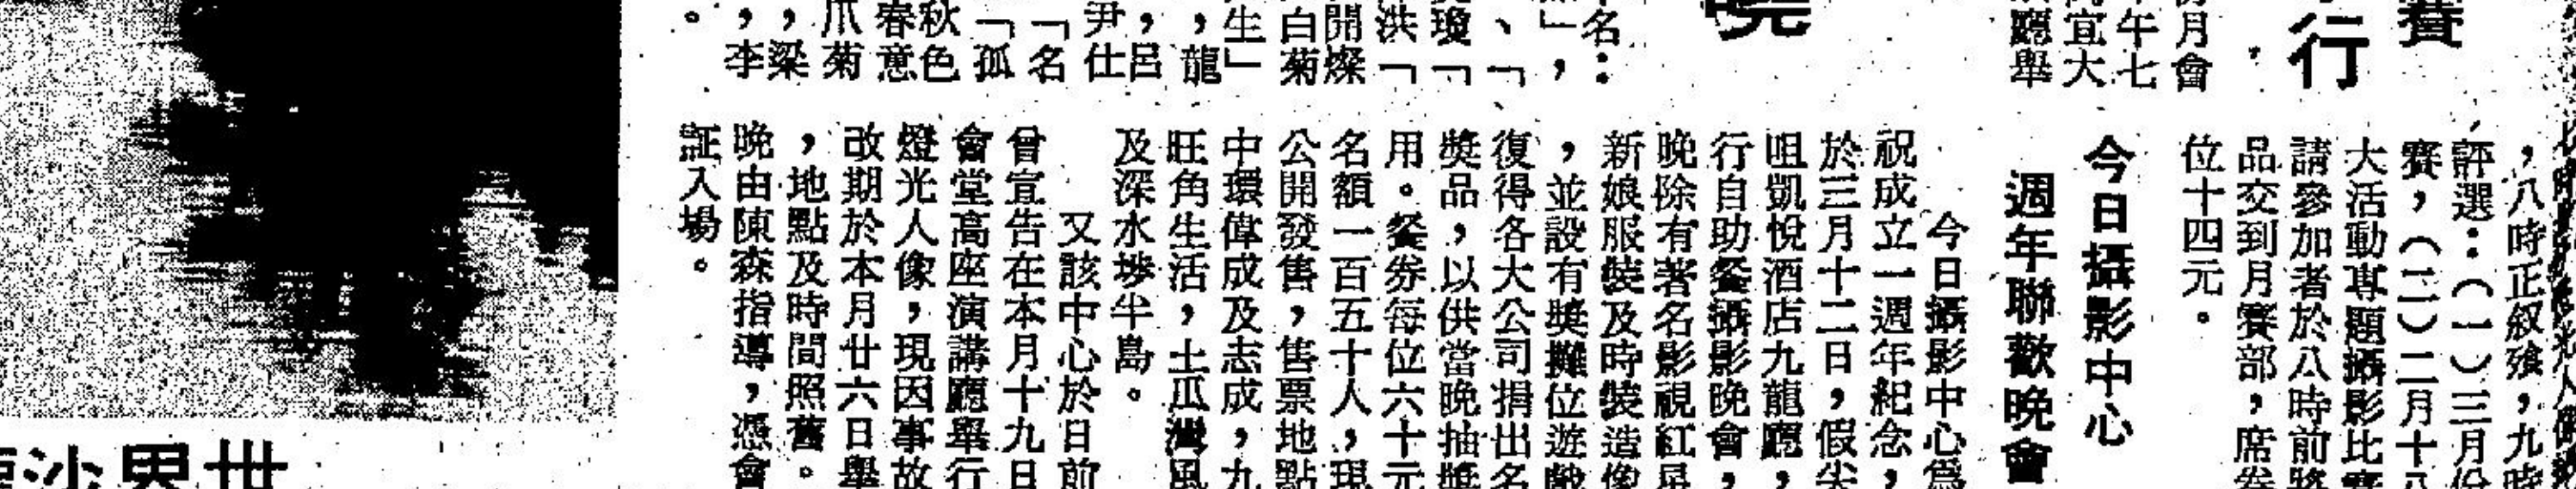 賽
行
份月會
午七
宜大
廳舉
曉
名：
」，
、「
瓊「
洪「
開燦
白菊
生」
，龍
，呂
尹仕
「名
「孤
秋色
春意
爪菊
，梁
，李
。
，八時正叙飱，九時
評選：（一）三月份
賽，（二）二月十八
大活動專題攝影比賽
請參加者於八時前將
品交到月賽部，席券
位十四元。
今日攝影中心
週年聯歡晚會
今日攝影中心為
祝成立一週年紀念，
於三月十二日，假尖
咀凱悅酒店九龍廳，
行自助餐攝影晚會，
晚除有著名影視紅星
新娘服裝及時裝造像
，並設有獎攤位遊戲
復得各大公司捐出名
獎品，以供當晚抽獎
用。餐券每位六十元
名額一百五十人，現
公開發售，售票地點
中環偉成及志成，九
旺角生活，土瓜灣風
及深水埗半島。
又該中心於日前
曾宣告在本月十九日
會堂高座演講廳舉行
燈光人像，現因事故
改期於本月廿六日舉
，地點及時間照舊。
晚由陳森指導，憑會
証入場。
世界沙龍